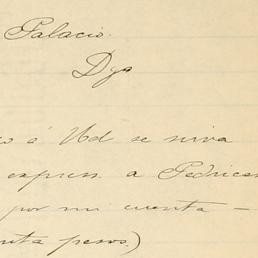 Palacio.
Dgo
á Ud se sirva
expres. a Pedrice
por mi cuenta —
nta pesos.)